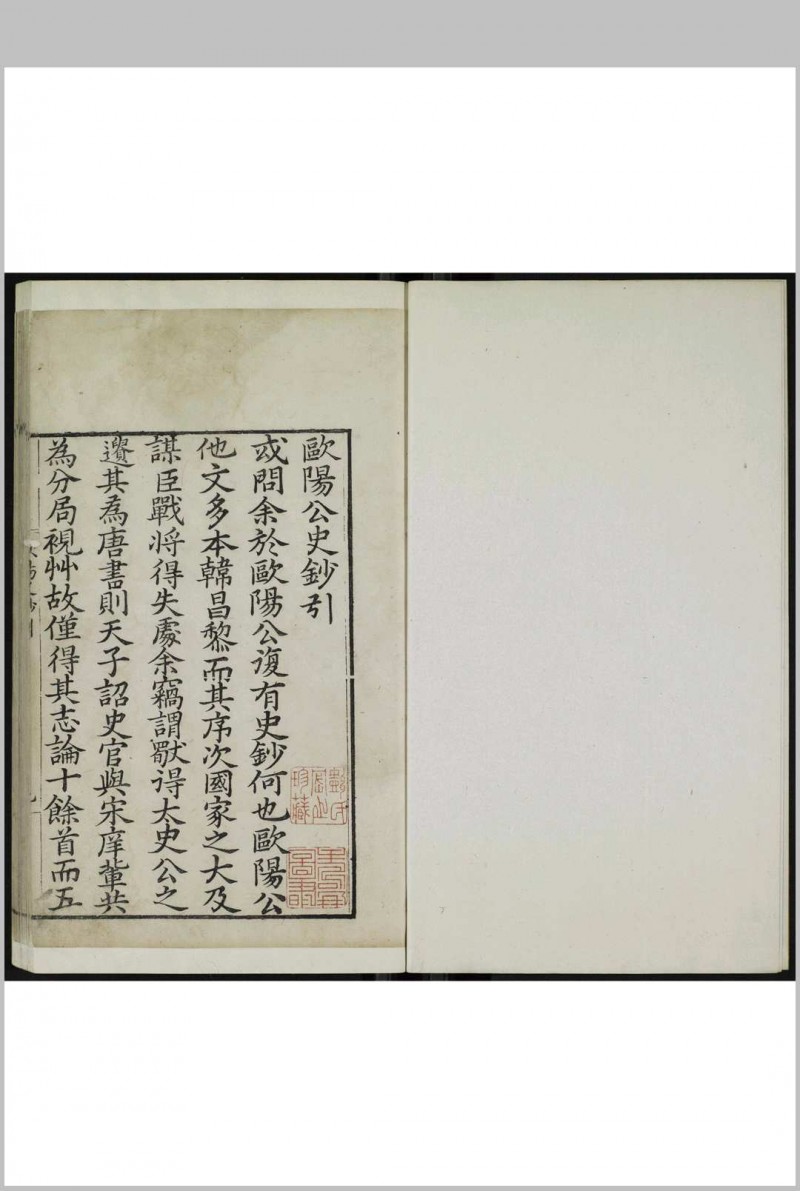 歐陽公史鈔引
或問余於歐陽公復有史鈔何也歐陽公
他文多本韓昌黎而其序次國家之大及
謀臣戰將得失處余竊謂獨得太史公之
遺其為唐書則天子詔史官與宋庠輩共
為分局視艸故僅得其志論十餘首而五
劉氏
珍藏